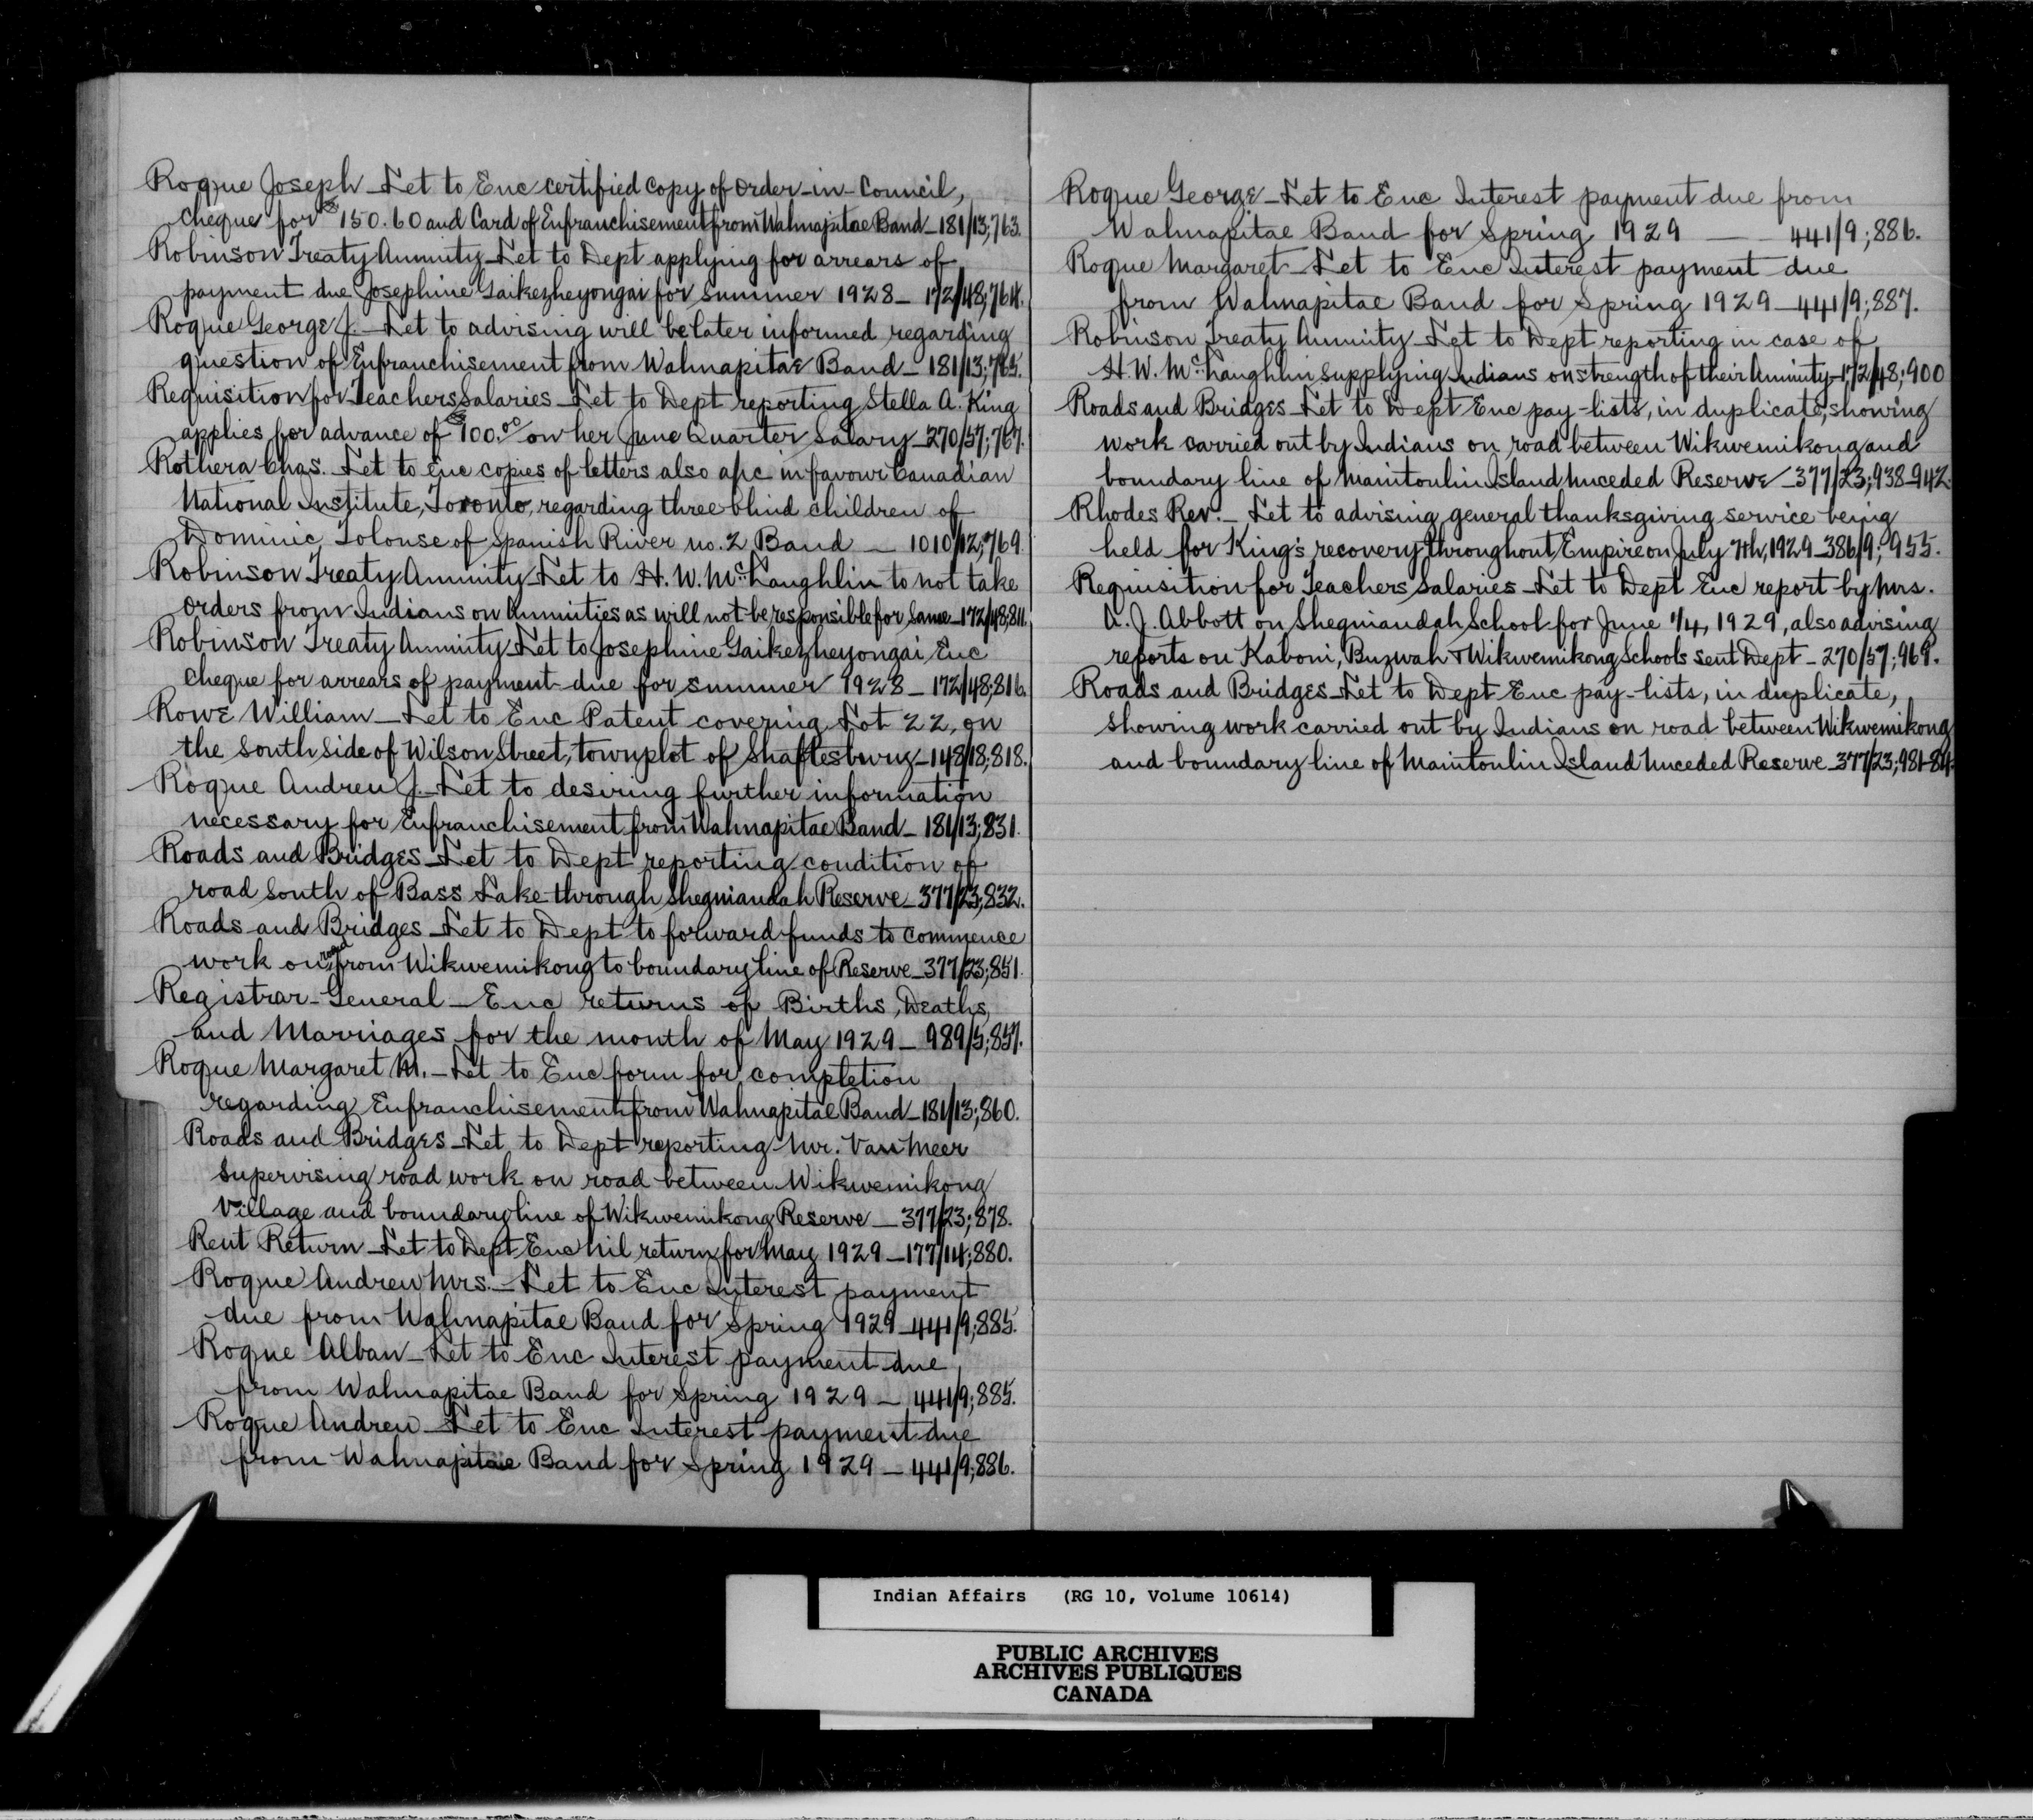 Roque Joseph - Let to Enc certified copy of Order-in-Council,
cheque for $150.60 and Card of Enfranchisement from Wahnapitae Band - 181/13;763.
Robinson Treaty Annuity - Let to Dept applying for arrears of
payment due Josephine Gaikezheyongai for Summer 1928 - 172/48;764.
Roque George J. - Let to advising will be later informed regarding
question of Enfranchisement from Wahnapitae Band - 181/13;765.
Requisition for Teachers Salaries - Let to Dept reporting Stella A. King
applies for advance of $100.00 on her June Quarter Salary - 270/57;767.
Rothera Chas. Let to Enc copies of letters also a/c in favour Canadian
National Institute, Toronto, regarding three blind children of
Dominic Tolouse of Spanish River no. 2 Band - 1010/12;769.
Robinson Treaty Annuity - Let to H. W. McLaughlin to not take
orders from Indians on Annuities as will not be responsible for same - 172/48;811.
Robinson Treaty Annuity - Let to Josephine Gaikezheyongai Enc
cheque for arrears of payment due for summer 1928 - 172/48;816.
Rowe William - Let to Enc Patent covering Lot 22, on
the South side of Wilson Street, townplot of Shaftesbury - 148/18;818.
Roque Andrew J. - Let to desiring further information
necessary for Enfranchisement from Wahnapitae Band - 181/13;831.
Roads and Bridges - Let to Dept reporting condition of
road South of Bass Lake through Sheguiandah Reserve - 377/23;832.
Roads and Bridges - Let to Dept to forward funds to commence
work on road from Wikwemikong to boundary line of Reserve - 377/23;851.
Registrar-General - Enc returns of Births, Deaths,
and Marriages for the month of May 1929 - 989/5;857.
Roque Margaret M. - Let to Enc form for completion
regarding Enfranchisement from Wahnapitae Band - 181/13;860.
Roads and Bridges - Let to Dept reporting Mr. Van Meer
supervising road work on road between Wikwemikong
Village and boundary line of Wikwemikong Reserve - 377/23;878.
Rent Return - Let to Dept Enc nil return for May 1929 - 177/14;880.
Roque Andrew Mrs. - Let to Enc Interest payment
due from Wahnapitae Band for Spring 1929 - 441/9;885.
Roque Alban - Let to Enc Interest payment due
from Wahnapitae Band for Spring 1929 - 441/9;885.
Roque Andrew - Let to Enc Interest payment due
from Wahnapitae Band for Spring 1929 - 441/9;886.
Roque George - Let to Enc Interest payment due from
Wahnapitae Band for Spring 1929 - 441/9;886.
Roque Margaret - Let to Enc Interest payment due
from Wahnapitae Band for Spring 1929 - 441/9;887.
Robinson Treaty Annuity - Let to Dept reporting in case of
H. W. McLaughlin supplying Indians on strength of their Annuity - 172/48;900
Roads and Bridges - Let to Dept Enc pay-lists, in duplicate, showing
work carried out by Indians on road between Wikwemikong and
boundary line of Manitoulin Island Unceded Reserve - 377/23;938-942.
Rhodes Rev. - Let to advising general thanksgiving service being
held for King's recovery throughout Empire on July 7th, 1929 - 386/9;955.
Requisition for Teachers Salaries - Let to Dept Enc report by Mrs.
A. J. Abbott on Sheguiandah School for June 1/4, 1929, also advising
reports on Kaboni, Buzwah & Wikwemikong Schools sent Dept - 270/57;969.
Roads and Bridges - Let to Dept Enc pay-lists, in duplicate,
showing work carried out by Indians on road between Wikwemikong
and boundary line of Manitoulin Island Unceded Reserve - 377/23;981-84.
Indian Affairs (RG 10, Volume 10614)
PUBLIC ARCHIVES
ARCHIVES PUBLIQUES
CANADA